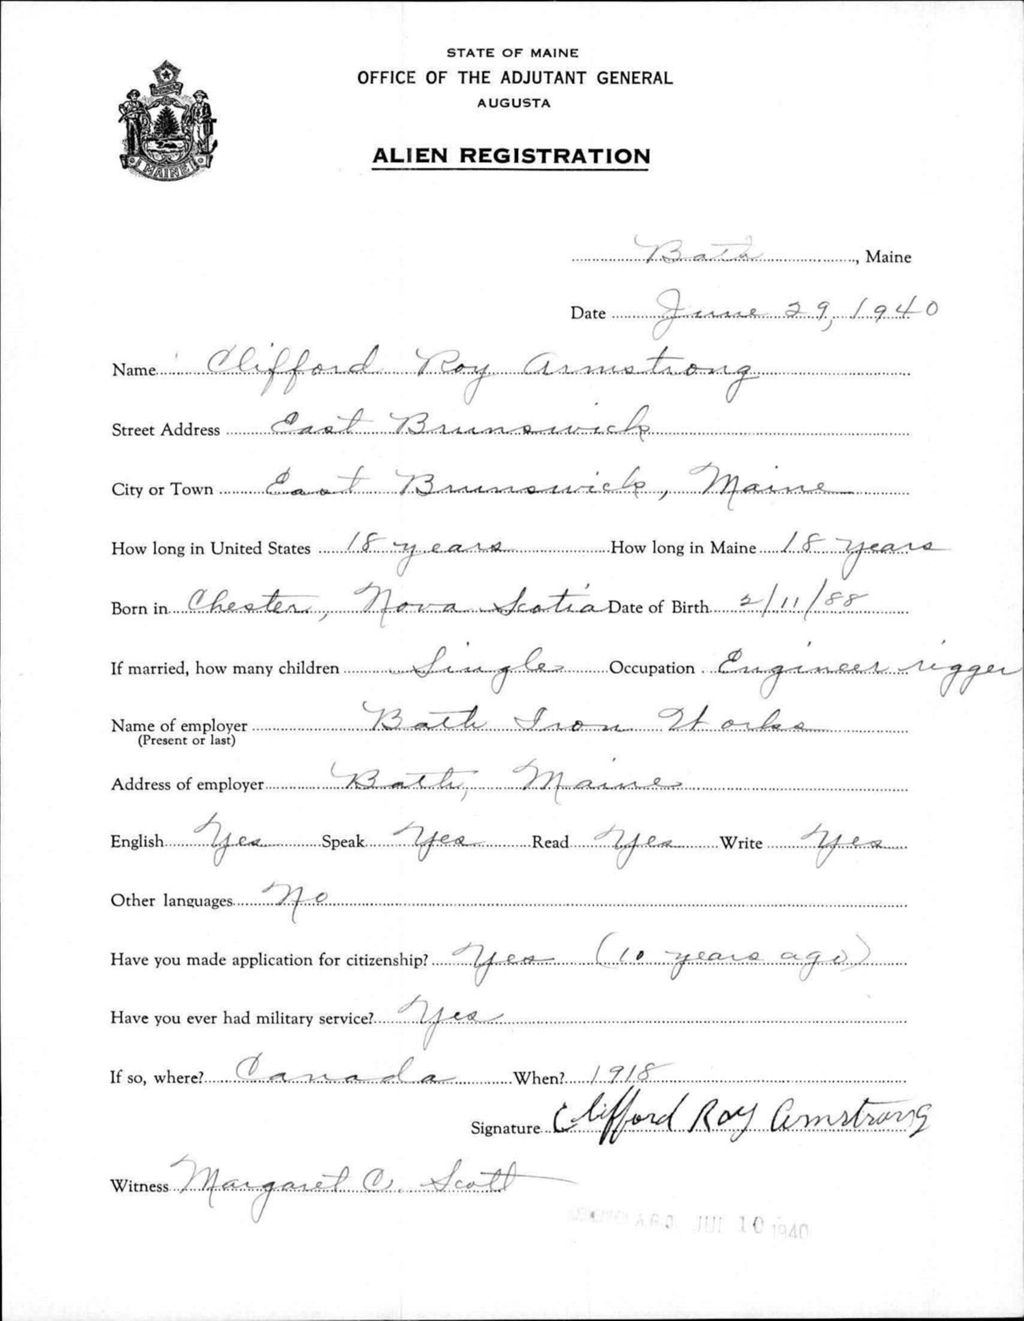 STATE OF MAINE
OFFICE OF THE ADJUTANT GENERAL
AUGUSTA
ALIEN REGISTRATION
MAINE
Bath, Maine
Date June 29, 1940
Name Clifford Roy Armstrong
Street Address East Brunswick
City or Town East Brunswick, Maine
How long in United States 18 years How long in Maine 18 years
Born in Chester, Nova Scotia Date of Birth 2/11/88
If married, how many children Single Occupation Engineer rigger
Name of employer Bath Iron Works
(Present or last)
Address of employer Bath, Maine
English Yes Speak Yes Read Yes Write Yes
Other languages No
Have you made application for citizenship? Yes (10 years ago)
Have you ever had military service? Yes
If so, where? Canada When? 1918
Signature Clifford Roy Armstrong
Witness Margaret C. Scott
A.G.O. JUL 10 1940